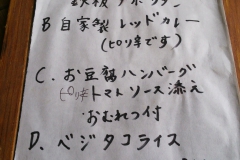 鉄板ナポリタン
B 自家製 レッドカレー
(ピリ辛です)
C. お豆腐ハンバーグ
ピリ辛トマトソース添え
おむれつ付
D. ベジタコライス